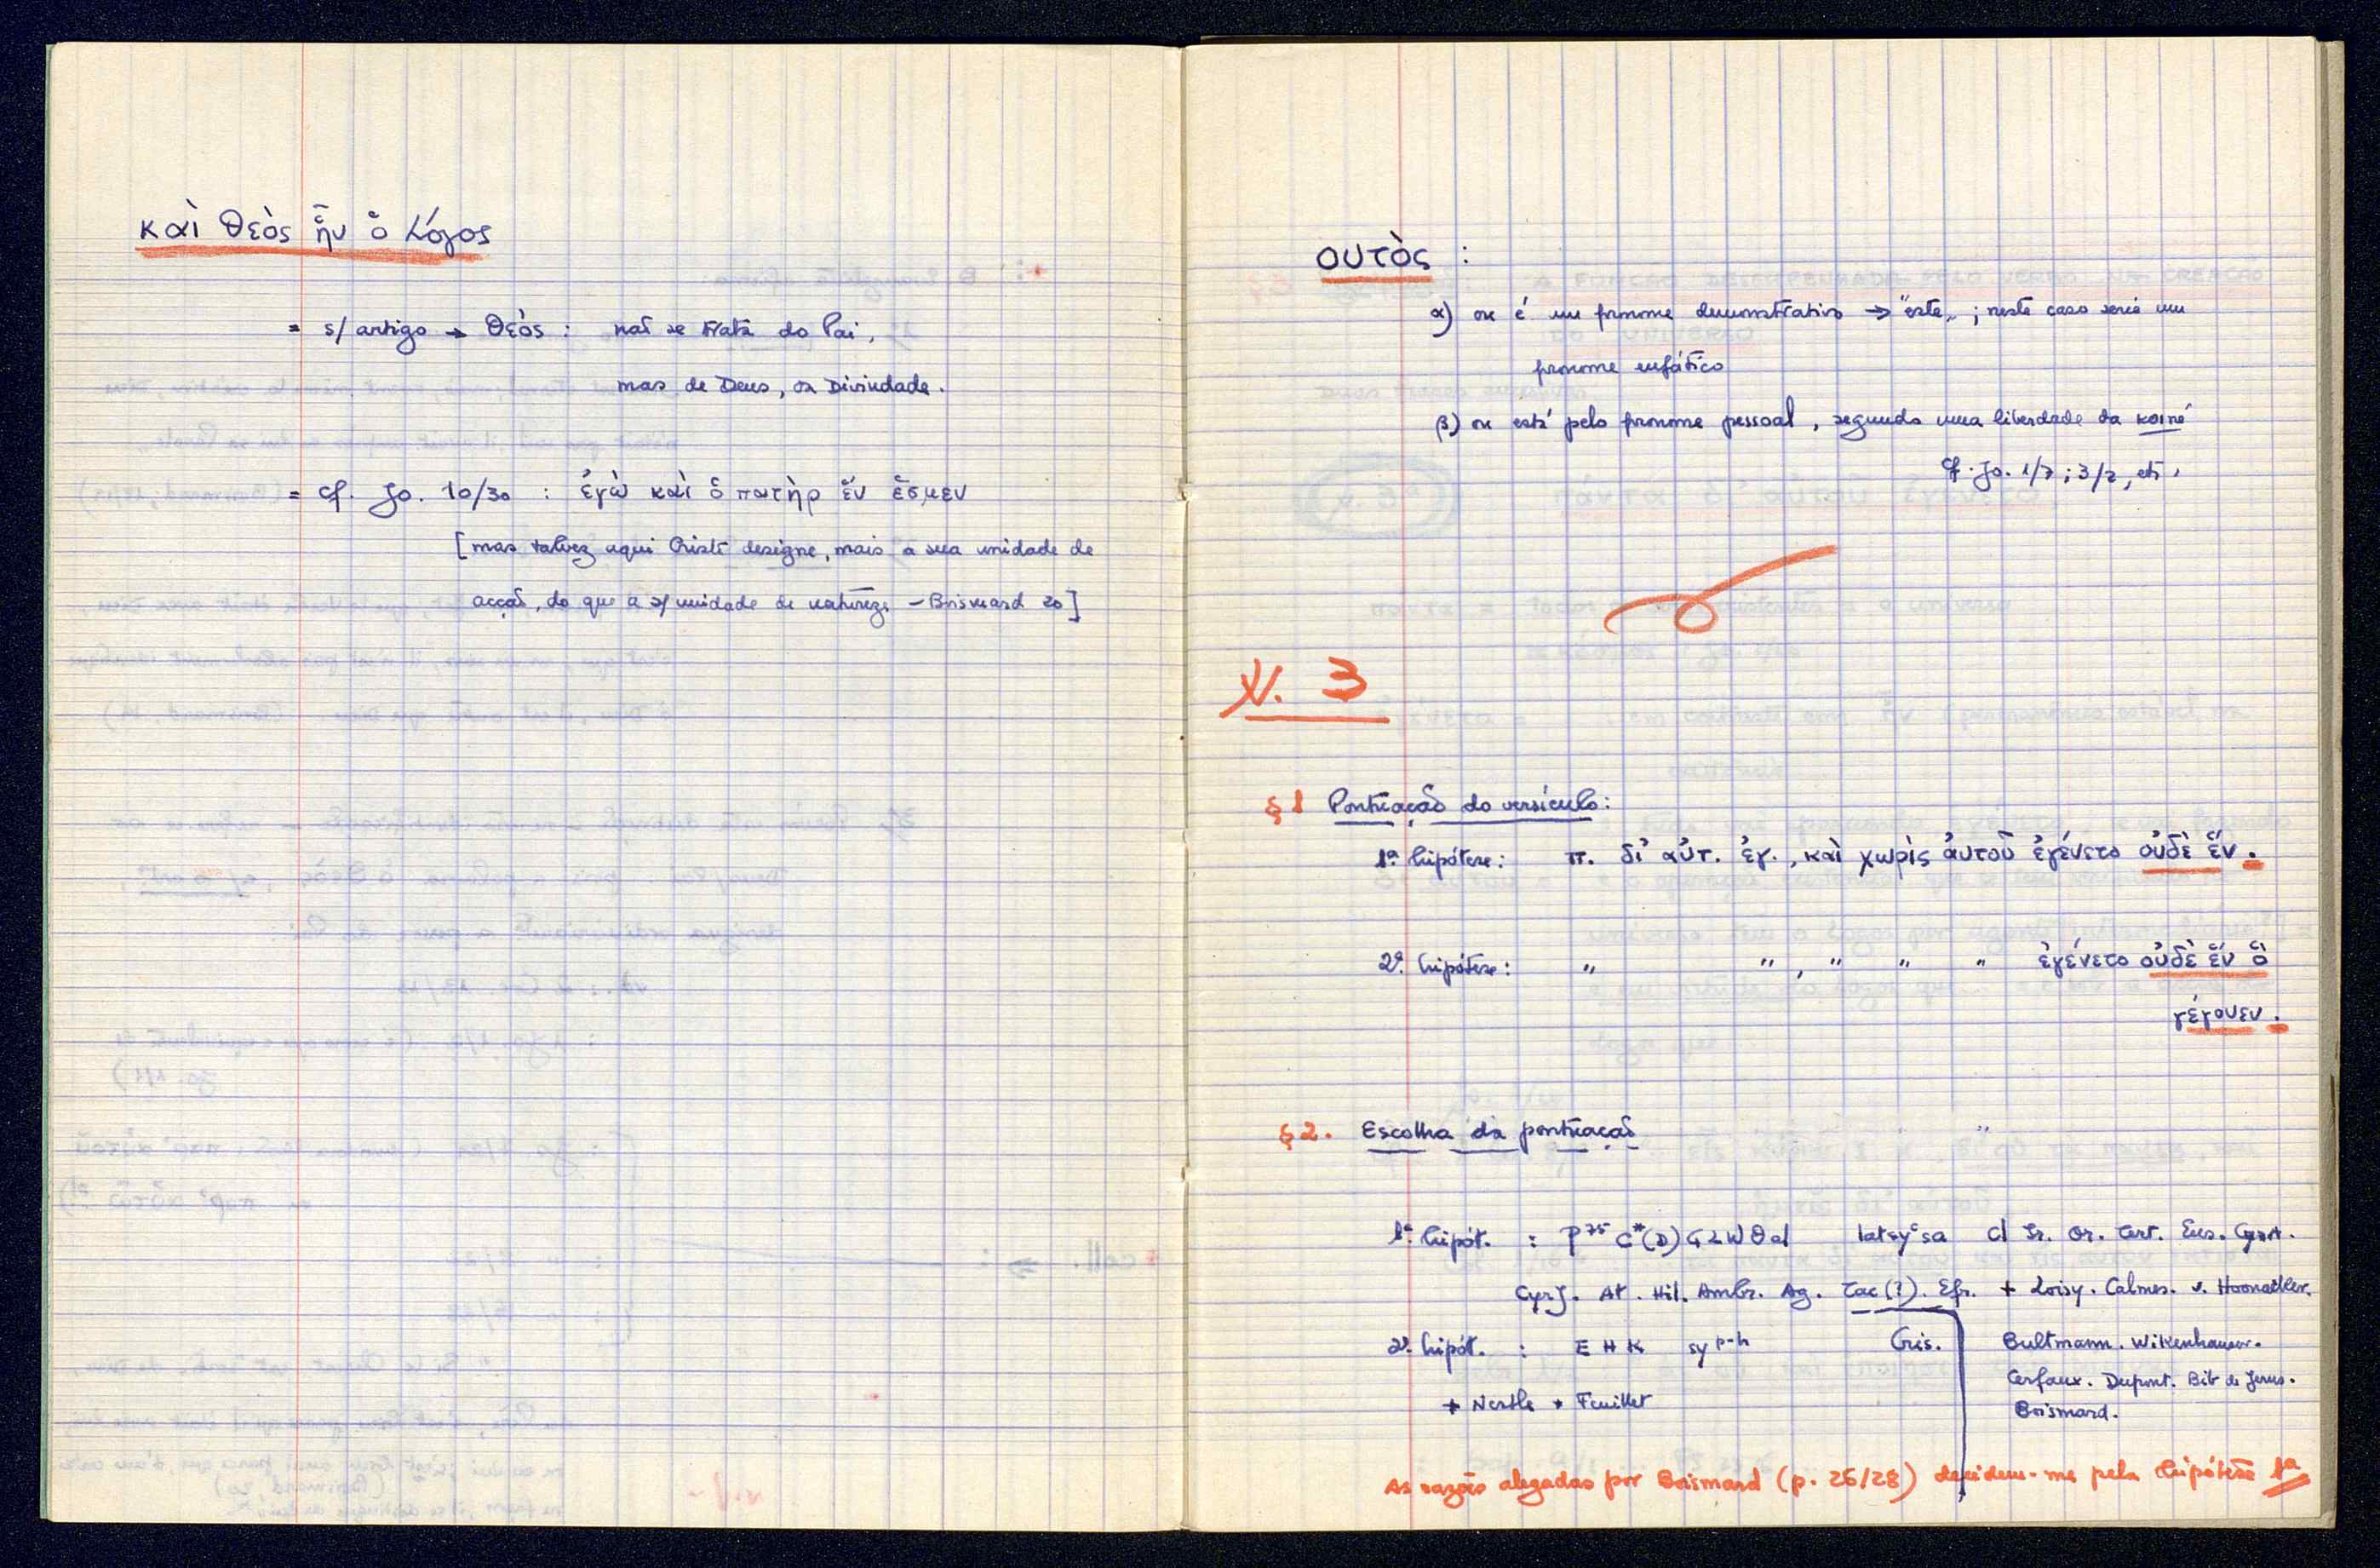 καὶ θεὸς ἦν ὁ λόγος
= s/ artigo → θεός : não se trata do Pai,
mas de Deus, da Divindade.
= cf. Jo. 10/30 : ἐγὼ καὶ ὁ πατὴρ ἕν ἐσμεν
[mas talvez aqui Cristo designe, mais a sua unidade de
acção, do que a s/ unidade de natureza – Boismard 20]
ουτὸς :
α) ou é um pronome demonstrativo → "este„ ; neste caso seria um
pronome enfático
β) ou está pelo pronome pessoal, segundo uma liberdade da koiné
cf. Jo. 1/7 ; 3/2, etc.
V. 3
§ 1 Pontuação do versículo:
1ª hipótese: π. δι' αὐτ. ἐγ., καὶ χωρὶς ἀυτοῦ ἐγένετο οὐδὲ ἕν .
2ª hipótese: " " , " " " ἐγένετο οὐδὲ ἕν ὃ
γέγονεν .
§ 2. Escolha da pontuação
1ª hipót. : P⁷⁵ C*(D) G L W Θ al lat syᶜ sa Cl Ir. Or. Tert. Eus.
CyrJ. At. Hil. Ambr. Ag. Tac (?). Efr. + Loisy. Calmes. v. Hoonacker.
2ª hipót. : E H K sy ᵖ⁻ʰ Cris. Bultmann. Wikenhauser.
Cerfaux. Dupont. Bib de Jerus.
+ Nestle + Feuillet Boismard.
As razões alegadas por Boismard (p. 25/28) decidem-me pela hipótese 1ª